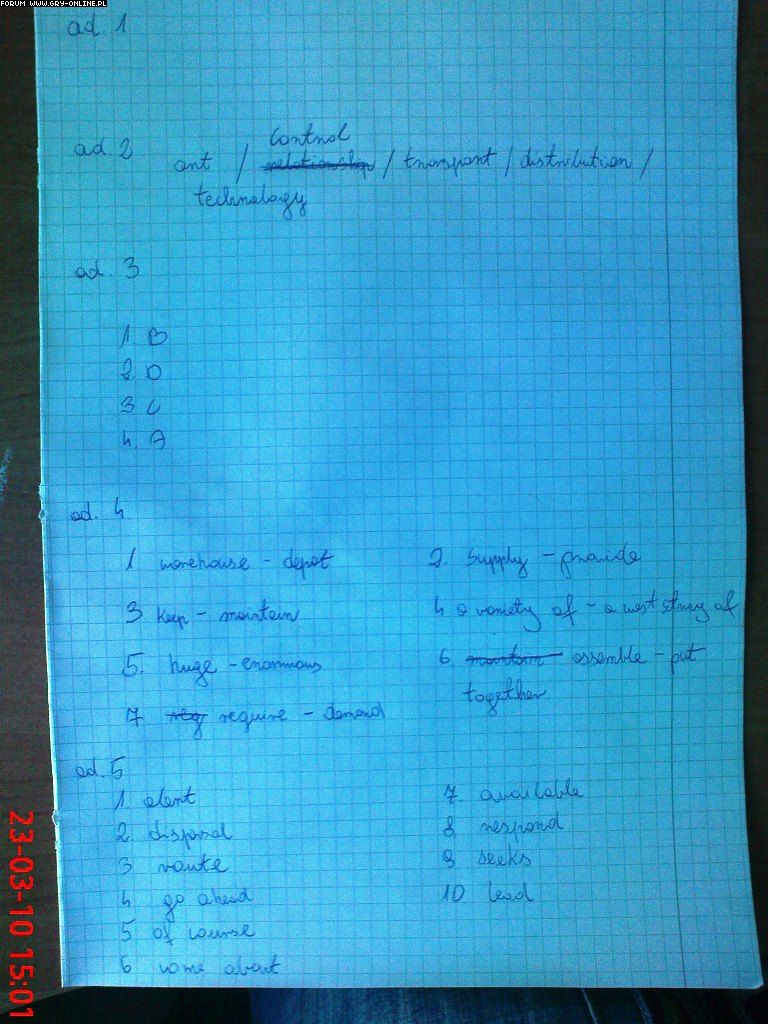 FORUM WWW.GRY-ONLINE.PL
ad. 1
ad. 2
control
art / relationship / transport / distribution /
technology
ad. 3
1 B
2 D
3 C
4. A
ad. 4
1 warehouse - depot
2. supply - provide
3 keep - maintain
4 a variety of - a vast of
5. huge - enormous
6. maintain assemble - put
together
7 req require - demand
ad. 5
1. alert
2. disposal
3 route
4 go ahead
5 of course
6 come about
7. available
8 respond
9 seeks
10 lead
23-03-10 15:01